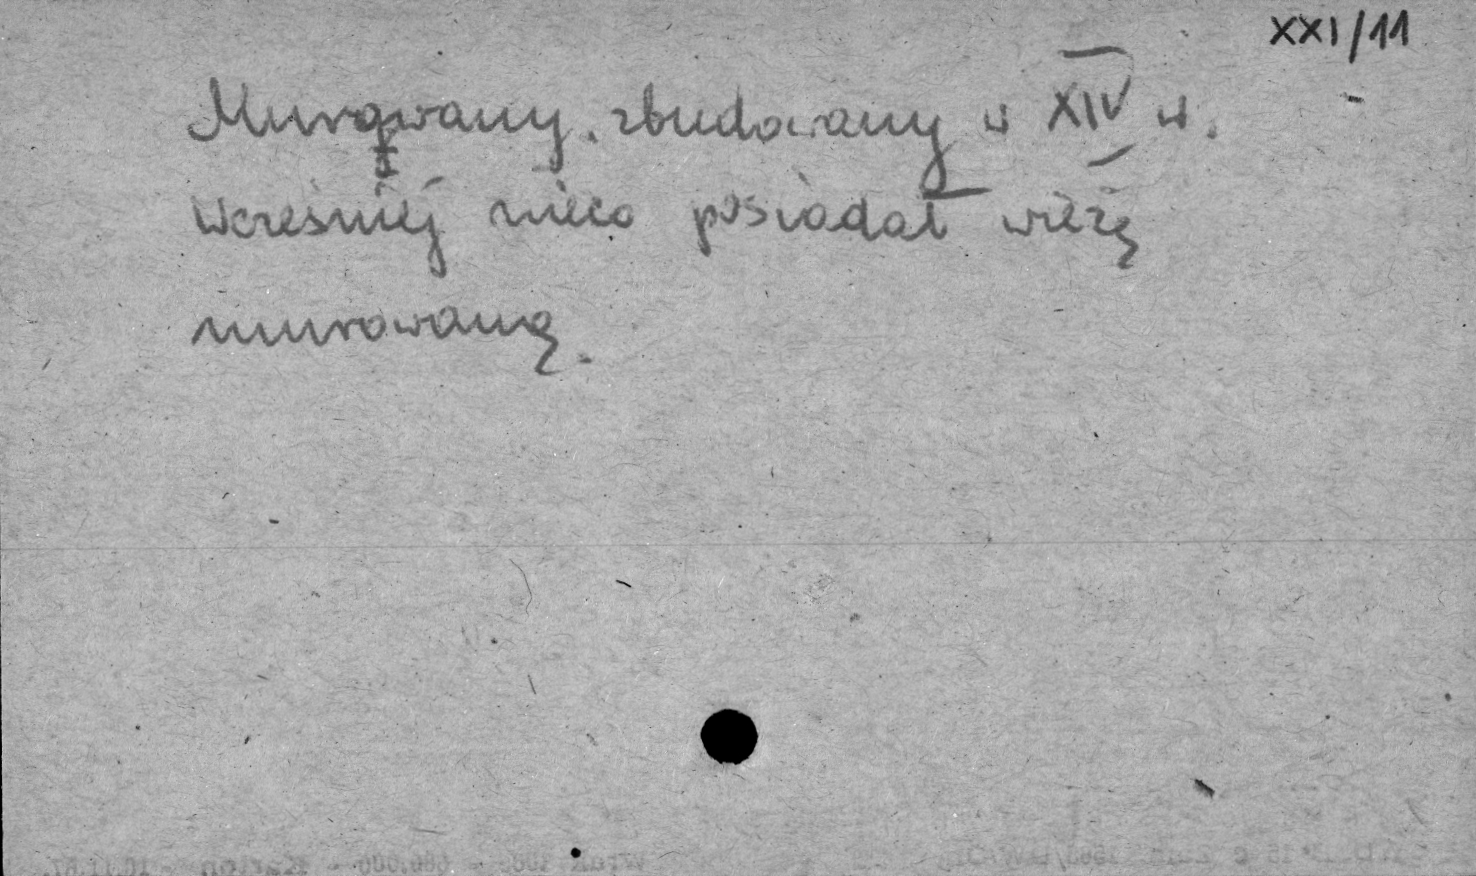 XXI/11
Murowany. zbudowany w XIV w.
wcześniej nieco posiadał wieżę
murowaną.